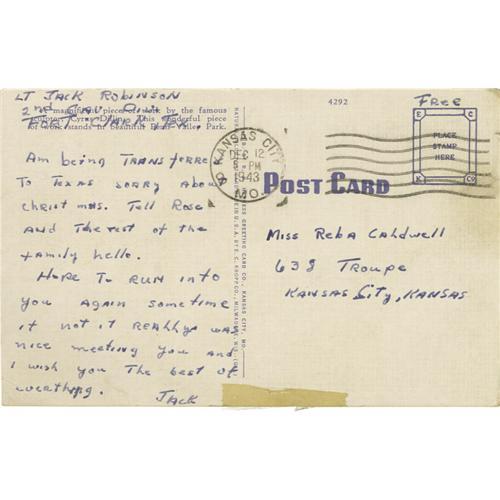 LT JACK ROBINSON
2nd CAV. DIV.
FORT CLARK TEX.
A magnificent piece of work by the famous
sculptor, Cyrus Dallin. This wonderful piece
of work stands in beautiful Penn Valley Park.
Am being TRANSferre
To Texas sorry Abou
Christmas. Tell Rose
AND The rest of the
family hello.
Hope To RUN into
you again sometime
if not it REAlly wa
nice meeting you and
I wish you The best of
everything.
JACK
KANSAS CITY
DEC 12
PM
1943
MO.
4292
Free
PLACE
STAMP
HERE
E C
K CO
POST CARD
Miss Reba CAldwell
638 Troupe
KANSAS City, KANSAS